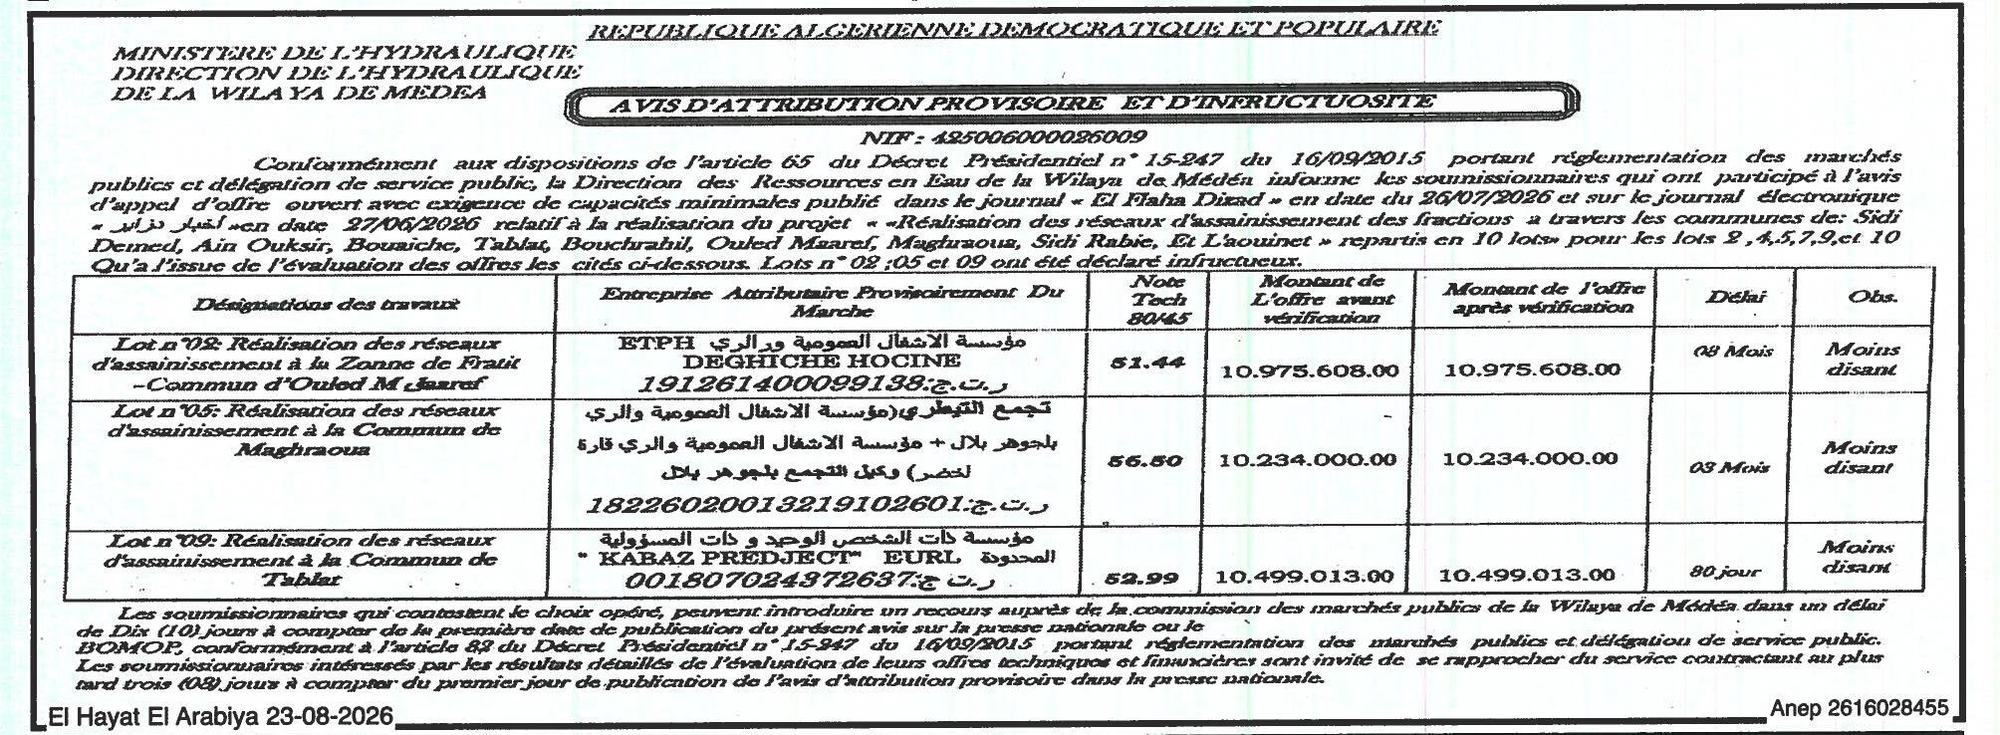 REPUBLIQUE ALGERIENNE DEMOCRATIQUE ET POPULAIRE
MINISTERE DE L'HYDRAULIQUE
DIRECTION DE L'HYDRAULIQUE
DE LA WILAYA DE MEDEA
AVIS D'ATTRIBUTION PROVISOIRE ET D'INFRUCTUOSITE
NIF : 425006000026009
Conformément aux dispositions de l'article 65 du Décret Présidentiel n° 15-247 du 16/09/2015 portant réglementation des marchés
publics et délégation de service public, la Direction des Ressources en Eau de la Wilaya de Médéa informe les soumissionnaires qui ont participé à l'avis
d'appel d'offre ouvert avec exigence de capacités minimales publié dans le journal « El Flaha Dizad » en date du 26/07/2026 et sur le journal électronique
« أخبار دزاير »en date 27/06/2026 relatif à la réalisation du projet « «Réalisation des réseaux d'assainissement des fractions a travers les communes de: Sidi
Demed, Ain Ouksir, Bouaiche, Tablat, Bouchrahil, Ouled Maaref, Maghraoua, Sidi Rabie, Et L'aouinet » repartis en 10 lots» pour les lots 2 ,4,5,7,9,et 10
Qu'a l'issue de l'évaluation des offres les cités ci-dessous. Lots n° 02 ;05 et 09 ont été déclaré infructueux.
Désignations des travaux
Entreprise Attributaire Provisoirement Du
Marche
Note
Tech
80/45
Montant de
L'offre avant
vérification
Montant de l'offre
après vérification
Délai
Obs.
Lot n°02: Réalisation des réseaux
d'assainissement à la Zonne de Fratit
-Commun d'Ouled M Jaaref
مؤسسة الاشغال العمومية ورالري ETPH
DEGHICHE HOCINE
ر.ت.ج:191261400099138
51.44
10.975.608.00
10.975.608.00
08 Mois
Moins
disant
Lot n°05: Réalisation des réseaux
d'assainissement à la Commun de
Maghraoua
تجمع التيطري(مؤسسة الاشغال العمومية والري
بلجوهر بلال + مؤسسة الاشغال العمومية والري قارة
لخضر) وكيل التجمع بلجوهر بلال
ر.ت.ج:18226020013219102601
56.50
10.234.000.00
10.234.000.00
03 Mois
Moins
disant
Lot n°09: Réalisation des réseaux
d'assainissement à la Commun de
Tablat
مؤسسة ذات الشخص الوحيد و ذات المسؤولية
المحدودة EURL "KABAZ PREDJECT "
ر.ت ج:001807024372637
52.99
10.499.013.00
10.499.013.00
80 jour
Moins
disant
Les soumissionnaires qui contestent le choix opéré, peuvent introduire un recours auprès de la commission des marchés publics de la Wilaya de Médéa dans un délai
de Dix (10) jours à compter de la première date de publication du présent avis sur la presse nationale ou le
BOMOP, conformément à l'article 82 du Décret Présidentiel n° 15-247 du 16/09/2015 portant réglementation des marchés publics et délégation de service public.
Les soumissionnaires intéressés par les résultats détaillés de l'évaluation de leurs offres techniques et financières sont invité de se rapprocher du service contractant au plus
tard trois (03) jours à compter du premier jour de publication de l'avis d'attribution provisoire dans la presse nationale.
El Hayat El Arabiya 23-08-2026
Anep 2616028455